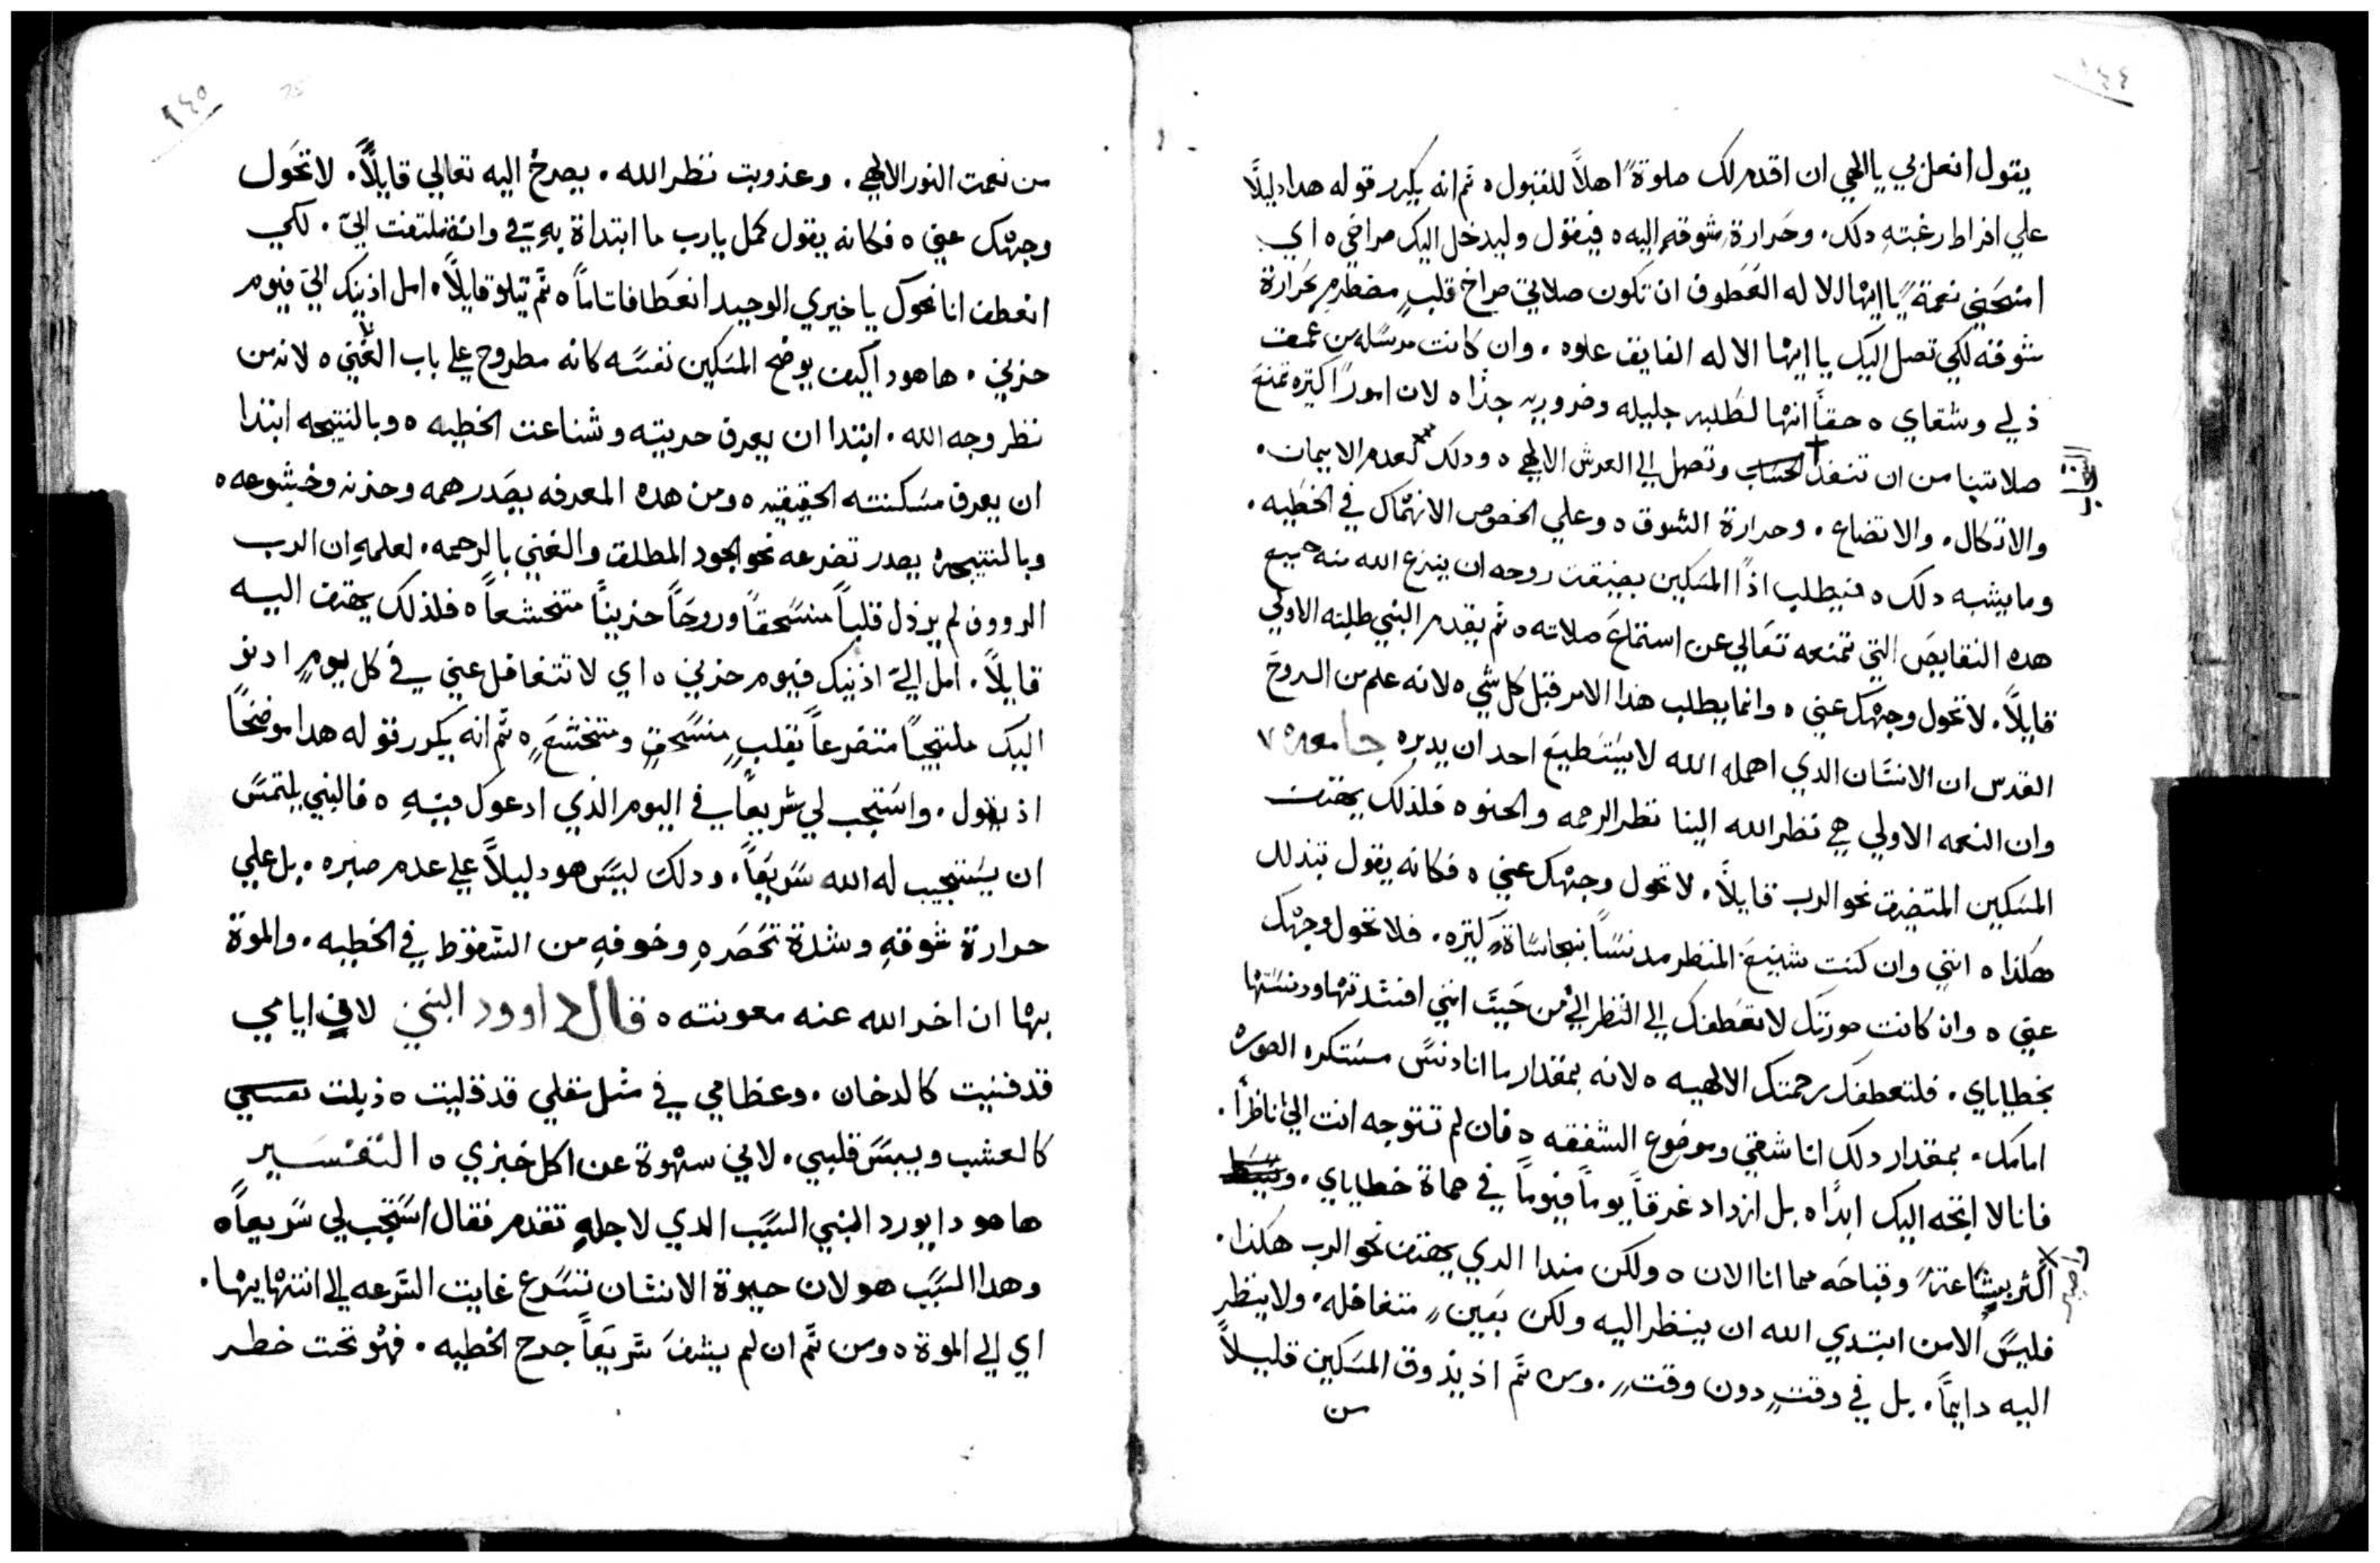 ١٤٤
يقول انعل لي يا الهي ان اقدم لك صلوةً اهلاً للقبول ٥ ثم انه يكرر قوله هدا دليلاً
علي افراط رغبتهِ دلك. وحَرارة شوقهِ اليه ٥ فيقول وليدخل اليك صراخي ٥ اي
امنحَني نعمةً يا ايها الاله العَطوف ان تكون صلاتي صراخ قلبٍ مضطرمٍ بحَرارة
شوقه لكي تصل اليك يا ايها الاله الفايق علوه. وان كانت مرسَله من عمق
ذلي وشقاي ٥ حقاً انها لطَلبه جليله وضروريه جدًا ٥ لان امورًا كتيره تمنعَ
صلاتنا من ان تنفذ السَحاب وتصل الي العرش الالهي ٥ ودلك لعدم الايمان.
والاتكال. والاتضاع. وحرارة الشوق ٥ وعلي الخصوص الانهماك في الخطيه.
وما يشبه دلك ٥ فيطلب اذًا المسَكين بضيقت روحه ان ينزع الله منه جميع
هده النقايصَ التي تمنعه تعَالي عن استماعَ صلاته ٥ ثم يقدم النبي طلبته الاولي
قايلاً. لا تحول وجهك عني ٥ وانما يطلب هذا الامر قبل كل شي ٥ لانه علم من الروحَ
القدس ان الانسَان الدي اهمله الله لا يسَتطيعَ احد ان يدبره جامعه ٧
وان النعمه الاولي هي نظر الله الينا نظر الرحمه والحنو ٥ فلذلك يهتف
المسَكين المتضيق نحو الرب قايلاً. لا تحول وجهك عني ٥ فكانه يقول بتدلل
هكذا ٥ انني وان كنت شنيعَ المنظر مدنسَاً بنجاسَاةٍ كتيره. فلا تحول وجهك
عني ٥ وان كانت صورتك لا تعَطفك الي النظر اليّ من حَيتَ انني افسَدتها ودنسَتها
بخطاياي. فلتعطفك رحمتك الالهيه ٥ لانه بمقدار ما انا دنسَ مستكره الصوره
امامك. بمقدار دلك انا شقي وموضوع الشفقه ٥ فان لم تتوجه انت الي ناظرًا.
فانا لا اتجه اليك ابدًا ٥ بل ازداد غرقاً يوماً فيوماً في حماة خطاياي.
اكثر بشَاعةً وقباحَه مما انا الان ٥ ولكن مندا الدي يهتف نحو الرب هكذا.
فليسَ الا من ابتدي الله ان ينظر اليه ولكن بعَينٍ متغافله. ولا ينظر
اليه دايماً. بل في وقتٍ دون وقتٍ. ومن ثم اذ يذوق المسَكين قليلاً
من
١٤٥
من نعمت النور الالهي. وعذوبت نظر الله. يصرخُ اليه تعالي قايلاً. لا تحَول
وجهك عني ٥ فكانه يقول كمل يارب ما ابتداة بهِ فيّ وانه تلتفت اليّ. لكي
انعطف انا نحوك يا خيري الوحيد انعَطافا تاماً ٥ ثم يتلو قايلاً. امل اذنيك اليّ فيوم
حزني. ها هودا كيف يوضح المسَكين نفسَه كانه مطروح علي باب الغني ٥ لانه من
نظر وجه الله. ابتدا ان يعرف حريته وشناعت الخطيه ٥ وبالنتيجه ابتدا
ان يعرف مسَكنته الحقيقيه ٥ ومن هده المعرفه يصَدر همه وحزنه وخشوعه ٥
وبالنتيجه يصدر تضرعه نحو الجود المطلق والغني بالرحمه. لعلمهِ ان الرب
الرووف لم يرذل قلباً منسَحقاً وروحَاً حزيناً متخشعاً ٥ فلذلك يهتف اليه
قايلاً. امل اليّ اذنيك فيوم حزني ٥ اي لا تتغافل عني في كل يومٍ ادنو
اليك ملتجياً متضرعاً بقلبٍ منسَحقٍ ومتخشعٍ ٥ ثم انه يكرر قوله هدا موضحَاً
اذ يقول. واسَتجب لي سَريعاً في اليوم الذي ادعوك فيهِ ٥ فالنبي يلتمسَ
ان يسَتجيب له الله سَريعَاً. ودلك ليسَ هو دليلاً علي عدم صبره. بل علي
حرارة شوقهِ وشدة تحَصَرهِ وخوفهِ من السَقوط في الخطيه. والموة
بها ان اخر الله عنه معونته ٥ قال داوود النبي لافي ايامي
قد فنيت كالدخان. وعظامي في مثل مقلي قد قليت ٥ ذبلت نفسي
كالعشب ويبسَ قلبي. لاني سهوة عن اكل خبزي ٥ التفسَير
ها هودا يورد النبي السَبب الدي لاجلهِ تقدم فقال اسَتجب لي سَريعاً ٥
وهدا السَبب هو لان حيوة الانسَان تسَرع غايت السَرعه الي انتهايها.
اي الي الموة ٥ ومن ثم ان لم يشفَ سَريعَاً جرح الخطيه. فهو تحت خطر